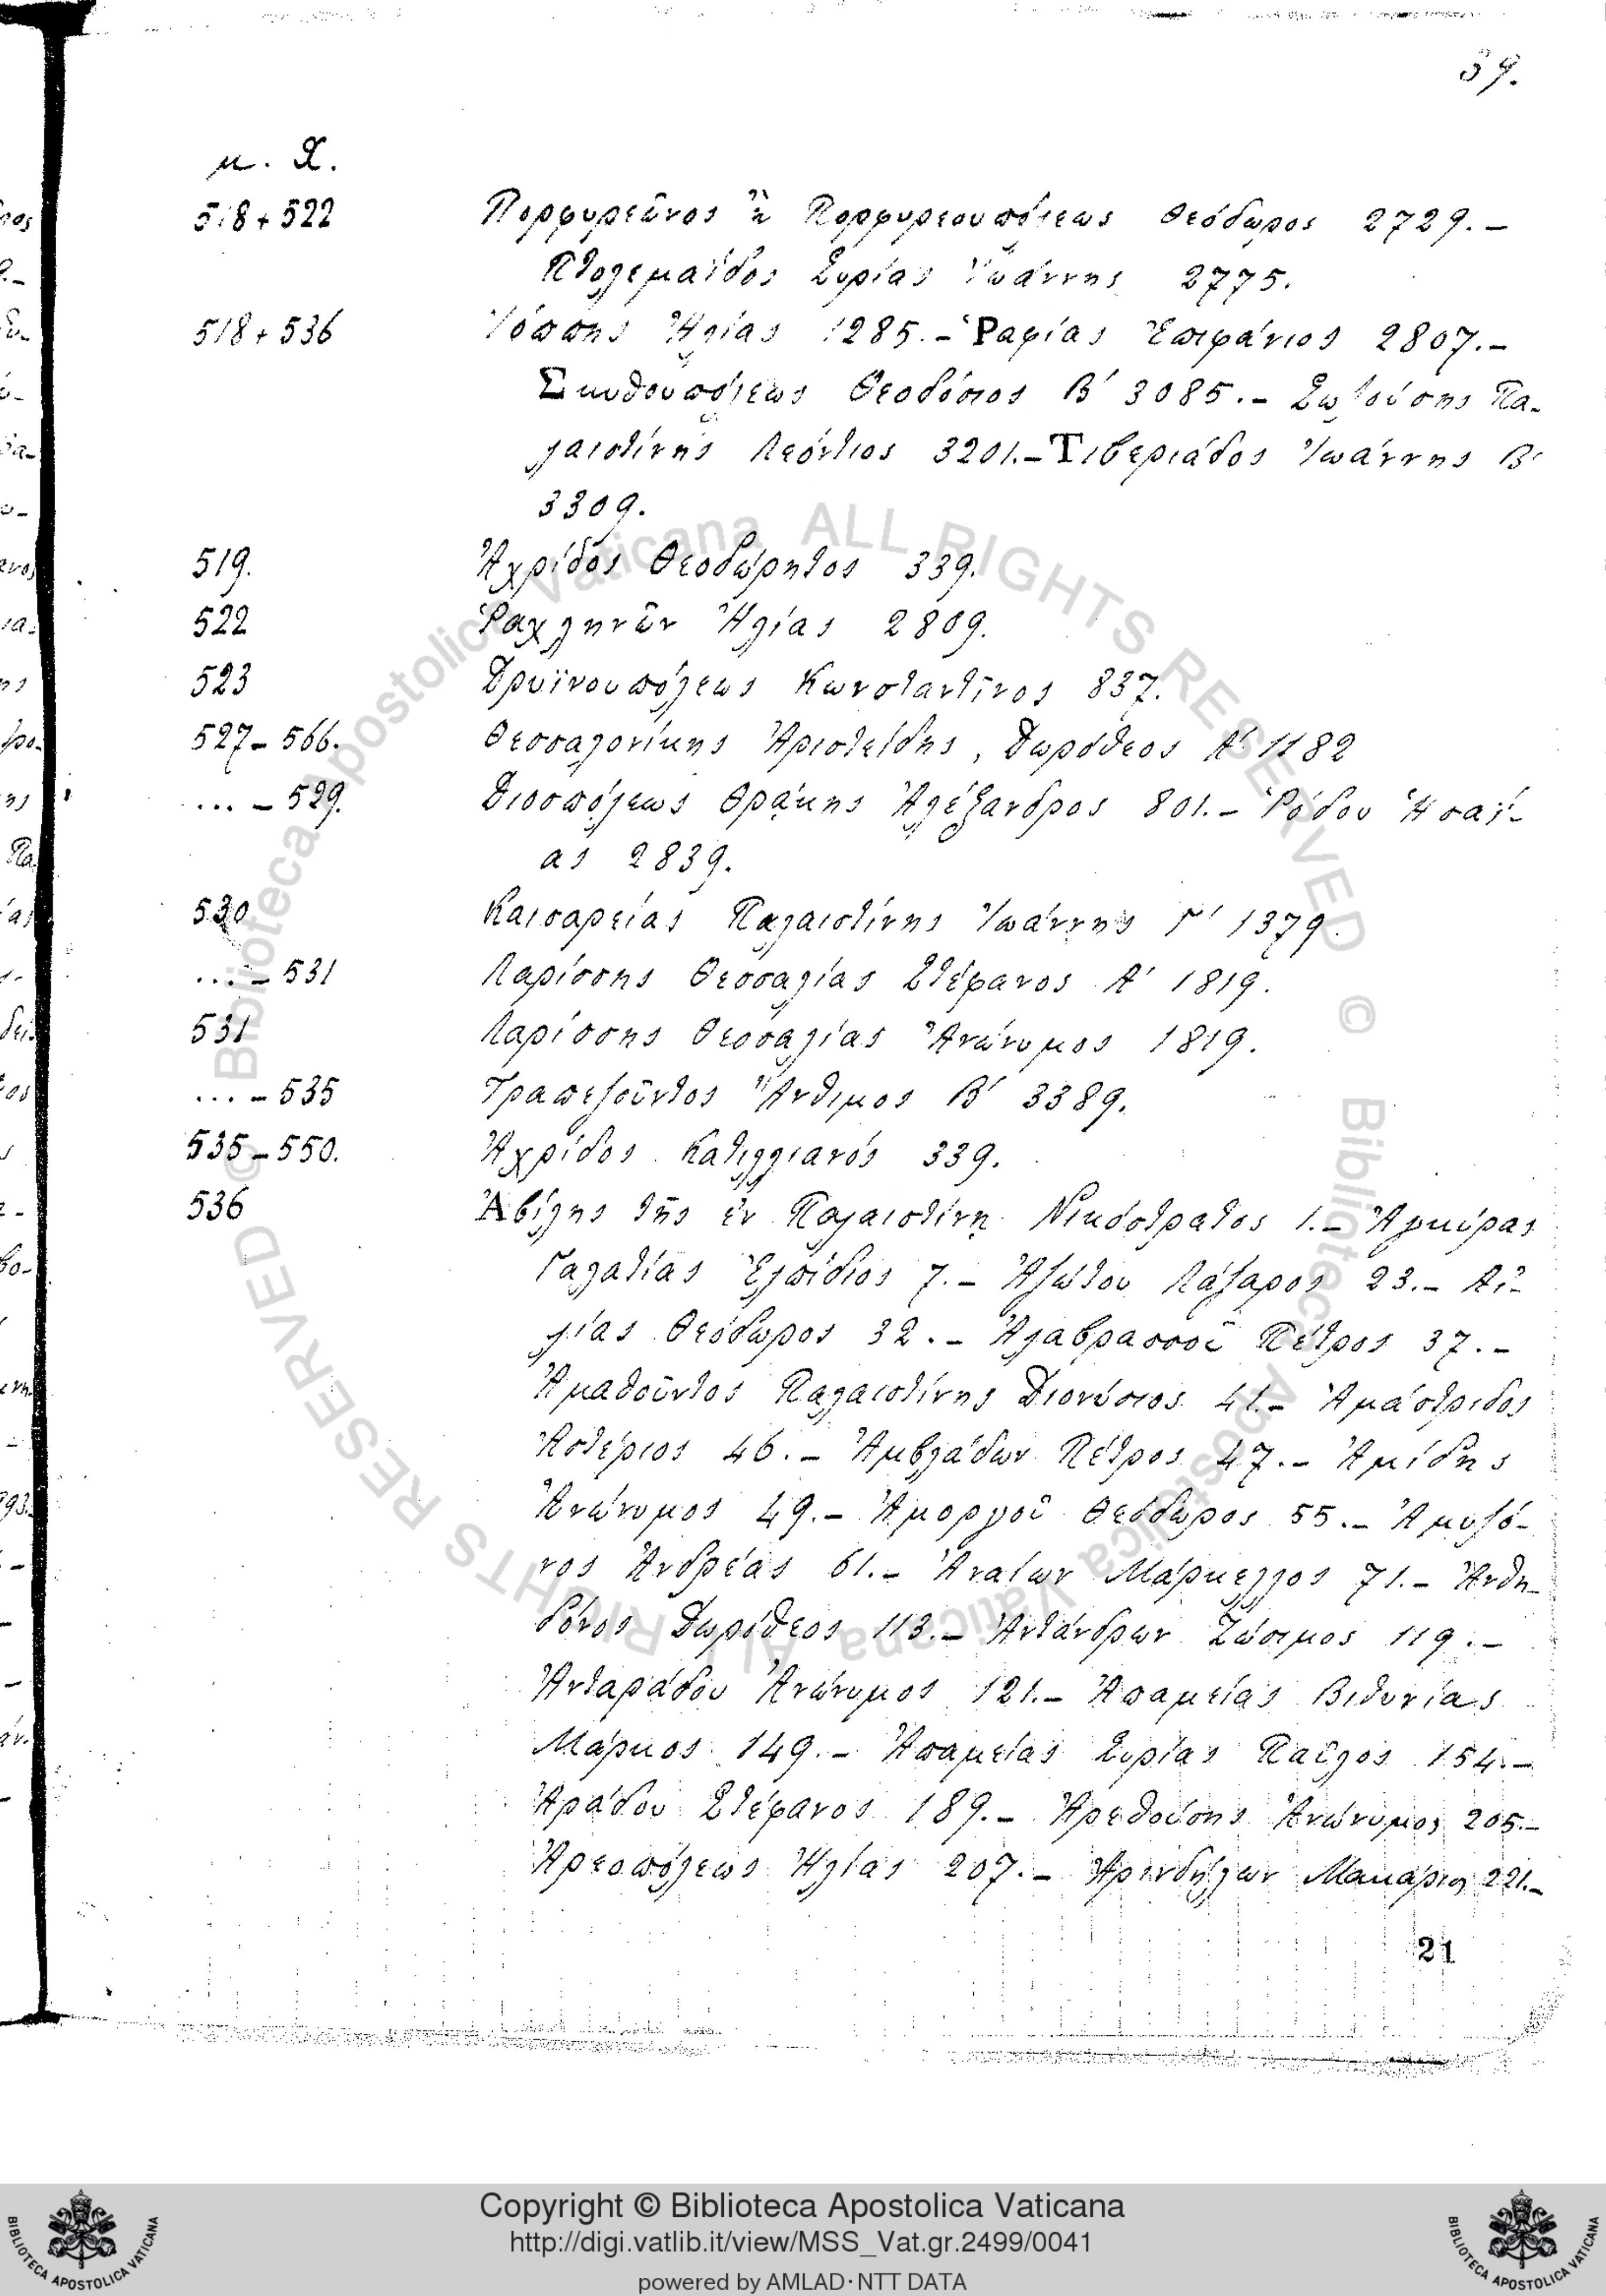 39.
μ. Χ.
518 + 522 Πορφυρεῶνος ἢ Πορφυρεουπόλεως Θεόδωρος 2729.–
Πτολεμαΐδος Συρίας Ἰωάννης 2775.
518 + 536 Ἰόππης Ἠλίας 1285.– Ῥαφίας Ἐπιφάνιος 2807.–
Σκυθουπόλεως Θεοδόσιος Β΄ 3085.– Σωζούσης Πα-
λαιστίνης Λεόντιος 3201.– Τιβεριάδος Ἰωάννης Β΄
3309.
519. Ἀχρίδος Θεοδώρητος 339.
522 Ῥαχληνῶν Ἠλίας 2809.
523 Δρυϊνουπόλεως Κωνσταντῖνος 837.
527 – 566. Θεσσαλονίκης Ἀριστείδης, Δωρόθεος Α΄ 1182
... – 529. Διοσπόλεως Θράκης Ἀλέξανδρος 801.– Ῥόδου Ἡσαΐ-
ας 2839.
530 Καισαρείας Παλαιστίνης Ἰωάννης Γ΄ 1379.
... – 531 Λαρίσσης Θεσσαλίας Στέφανος Α΄ 1819.
531 Λαρίσσης Θεσσαλίας Ἀνώνυμος 1819.
... – 535 Τραπεζοῦντος Ἄνθιμος Β΄ 3389.
535 – 550. Ἀχρίδος Κατελλιανός 339.
536 Ἀβίλης τῆς ἐν Παλαιστίνῃ Νικόστρατος 1.– Ἀγκύρας
Γαλατίας Ἐλπίδιος 7.– Ἀζώτου Λάζαρος 23.– Αἰ-
λίας Θεόδωρος 32.– Ἀλαβρασσοῦ Πέτρος 37.–
Ἀμαθοῦντος Παλαιστίνης Διονύσιος 41.– Ἀμάστριδος
Ἀστέριος 46.– Ἀμβλάδων Πέτρος 47.– Ἀμίδης
Ἀνώνυμος 49.– Ἀμοργοῦ Θεόδωρος 55.– Ἀμυζό-
νος Ἀνδρέας 61.– Ἀναίων Μάρκελλος 71.– Ἀνθη-
δόνος Δωρόθεος 113.– Ἀντάνδρων Ζώσιμος 119.–
Ἀνταράδου Ἀνώνυμος 121.– Ἀπαμείας Βιθυνίας
Μάρκος 149.– Ἀπαμείας Συρίας Παῦλος 154.–
Ἀράδου Στέφανος 189.– Ἀρεθούσης Ἀνώνυμος 205.–
Ἀρεοπόλεως Ἠλίας 207.– Ἀρινδήλων Μακάριος 221.–
21
Copyright © Biblioteca Apostolica Vaticana
http://digi.vatlib.it/view/MSS_Vat.gr.2499/0041
powered by AMLAD·NTT DATA
BIBLIOTECA APOSTOLICA VATICANA
BIBLIOTECA APOSTOLICA VATICANA
© Biblioteca Apostolica Vaticana ALL RIGHTS RESERVED
© Biblioteca Apostolica Vaticana ALL RIGHTS RESERVED